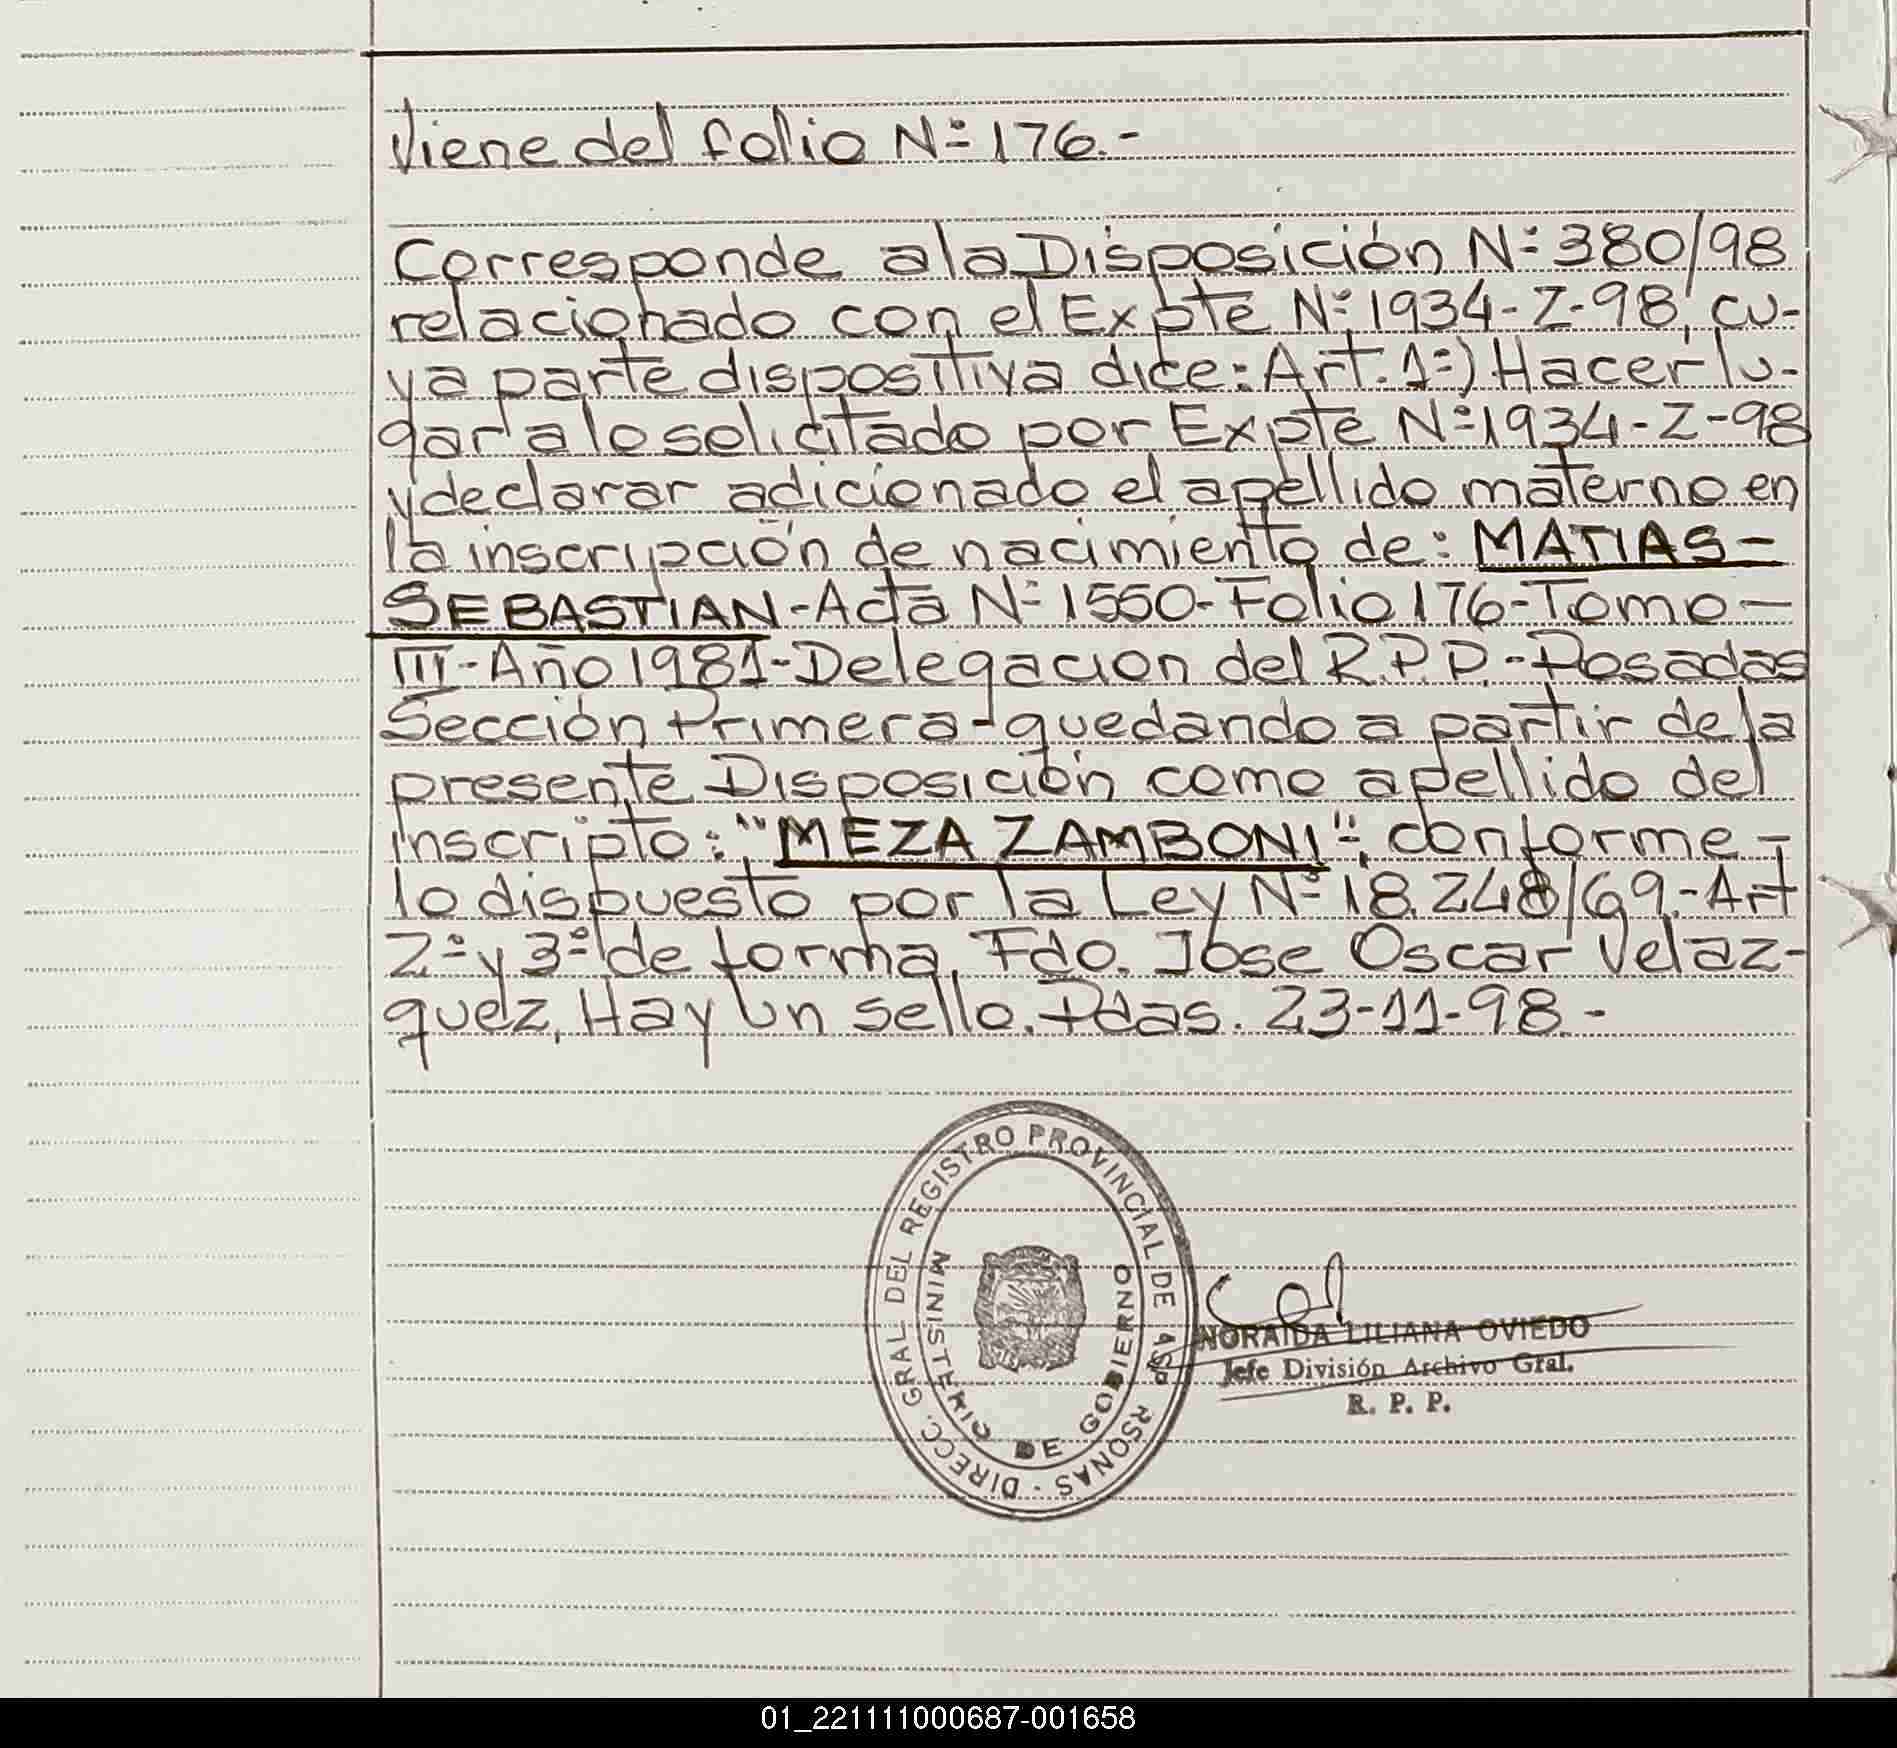 Viene del folio Nº 176.-
Corresponde a la Disposición Nº 380/98
relacionado con el Expte Nº 1934-Z-98, cu-
ya parte dispositiva dice: Art. 1º) Hacer lu-
gar a lo solicitado por Expte Nº 1934-Z-98
y declarar adicionado el apellido materno en
la inscripción de nacimiento de: MATIAS-
SEBASTIAN-Acta Nº 1550-Folio 176-Tomo-
III-Año 1981-Delegacion del R.P.P.-Posadas
Sección Primera-quedando a partir de la
presente Disposición como apellido del
inscripto: "MEZA ZAMBONI"-, conforme-
lo dispuesto por la Ley Nº 18.248/69.-Art
2º y 3º de forma, Fdo. Jose Oscar Velaz-
quez, Hay un sello. Pdas. 23-11-98.-
DIRECC. GRAL DEL REGISTRO PROVINCIAL DE LAS P RSONAS -
MINISTERIO DE GOBIERNO
NORAIDA LILIANA OVIEDO
Jefe División Archivo Gral.
R. P. P.
01_221111000687-001658